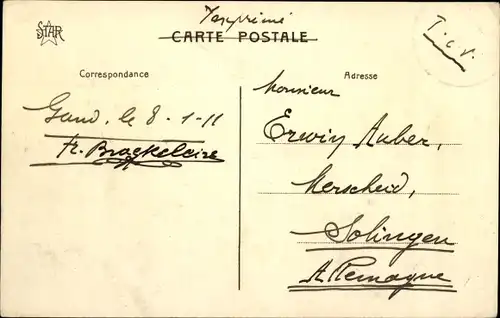 STAR
Imprimé
CARTE POSTALE
T.c.v.
Correspondance
Adresse
Gand, le 8-1-11
Fr. Braekeleire
Monsieur
Erwin Auber,
Merscheid,
Solingen
Allemagne